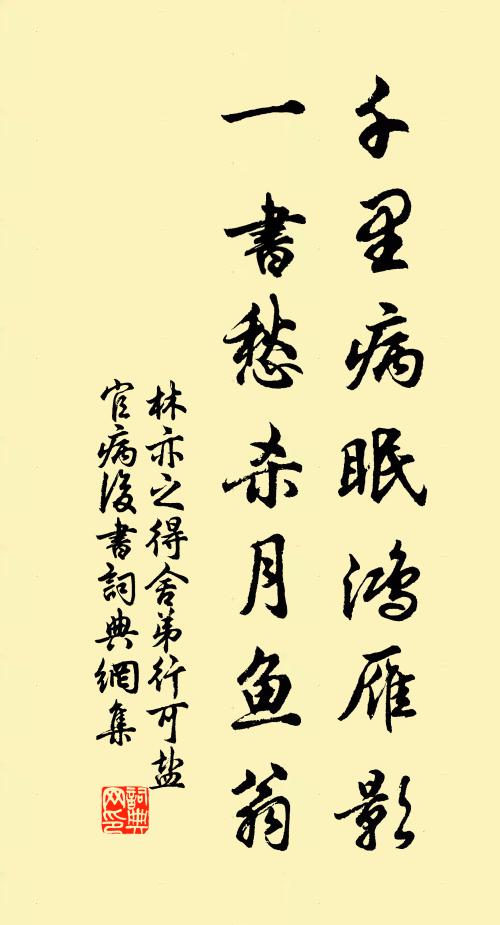 千里病眠鸿雁影
一書愁杀月鱼翁
林亦之得舍弟行可盐
官病後書詞典網集
詞典网印